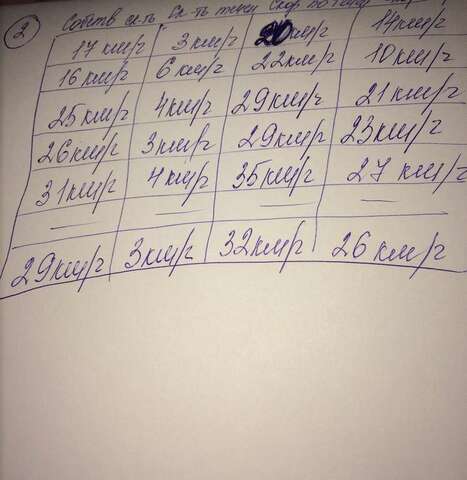 2 Собств ск-ть Ск-ть теч Скор по теч
17 км/ч 3 км/ч 20 км/ч 14 км/ч
16 км/ч 6 км/ч 22 км/ч 10 км/ч
25 км/ч 4 км/ч 29 км/ч 21 км/ч
26 км/ч 3 км/ч 29 км/ч 23 км/ч
31 км/ч 4 км/ч 35 км/ч 27 км/ч
— — — —
29 км/ч 3 км/ч 32 км/ч 26 км/ч